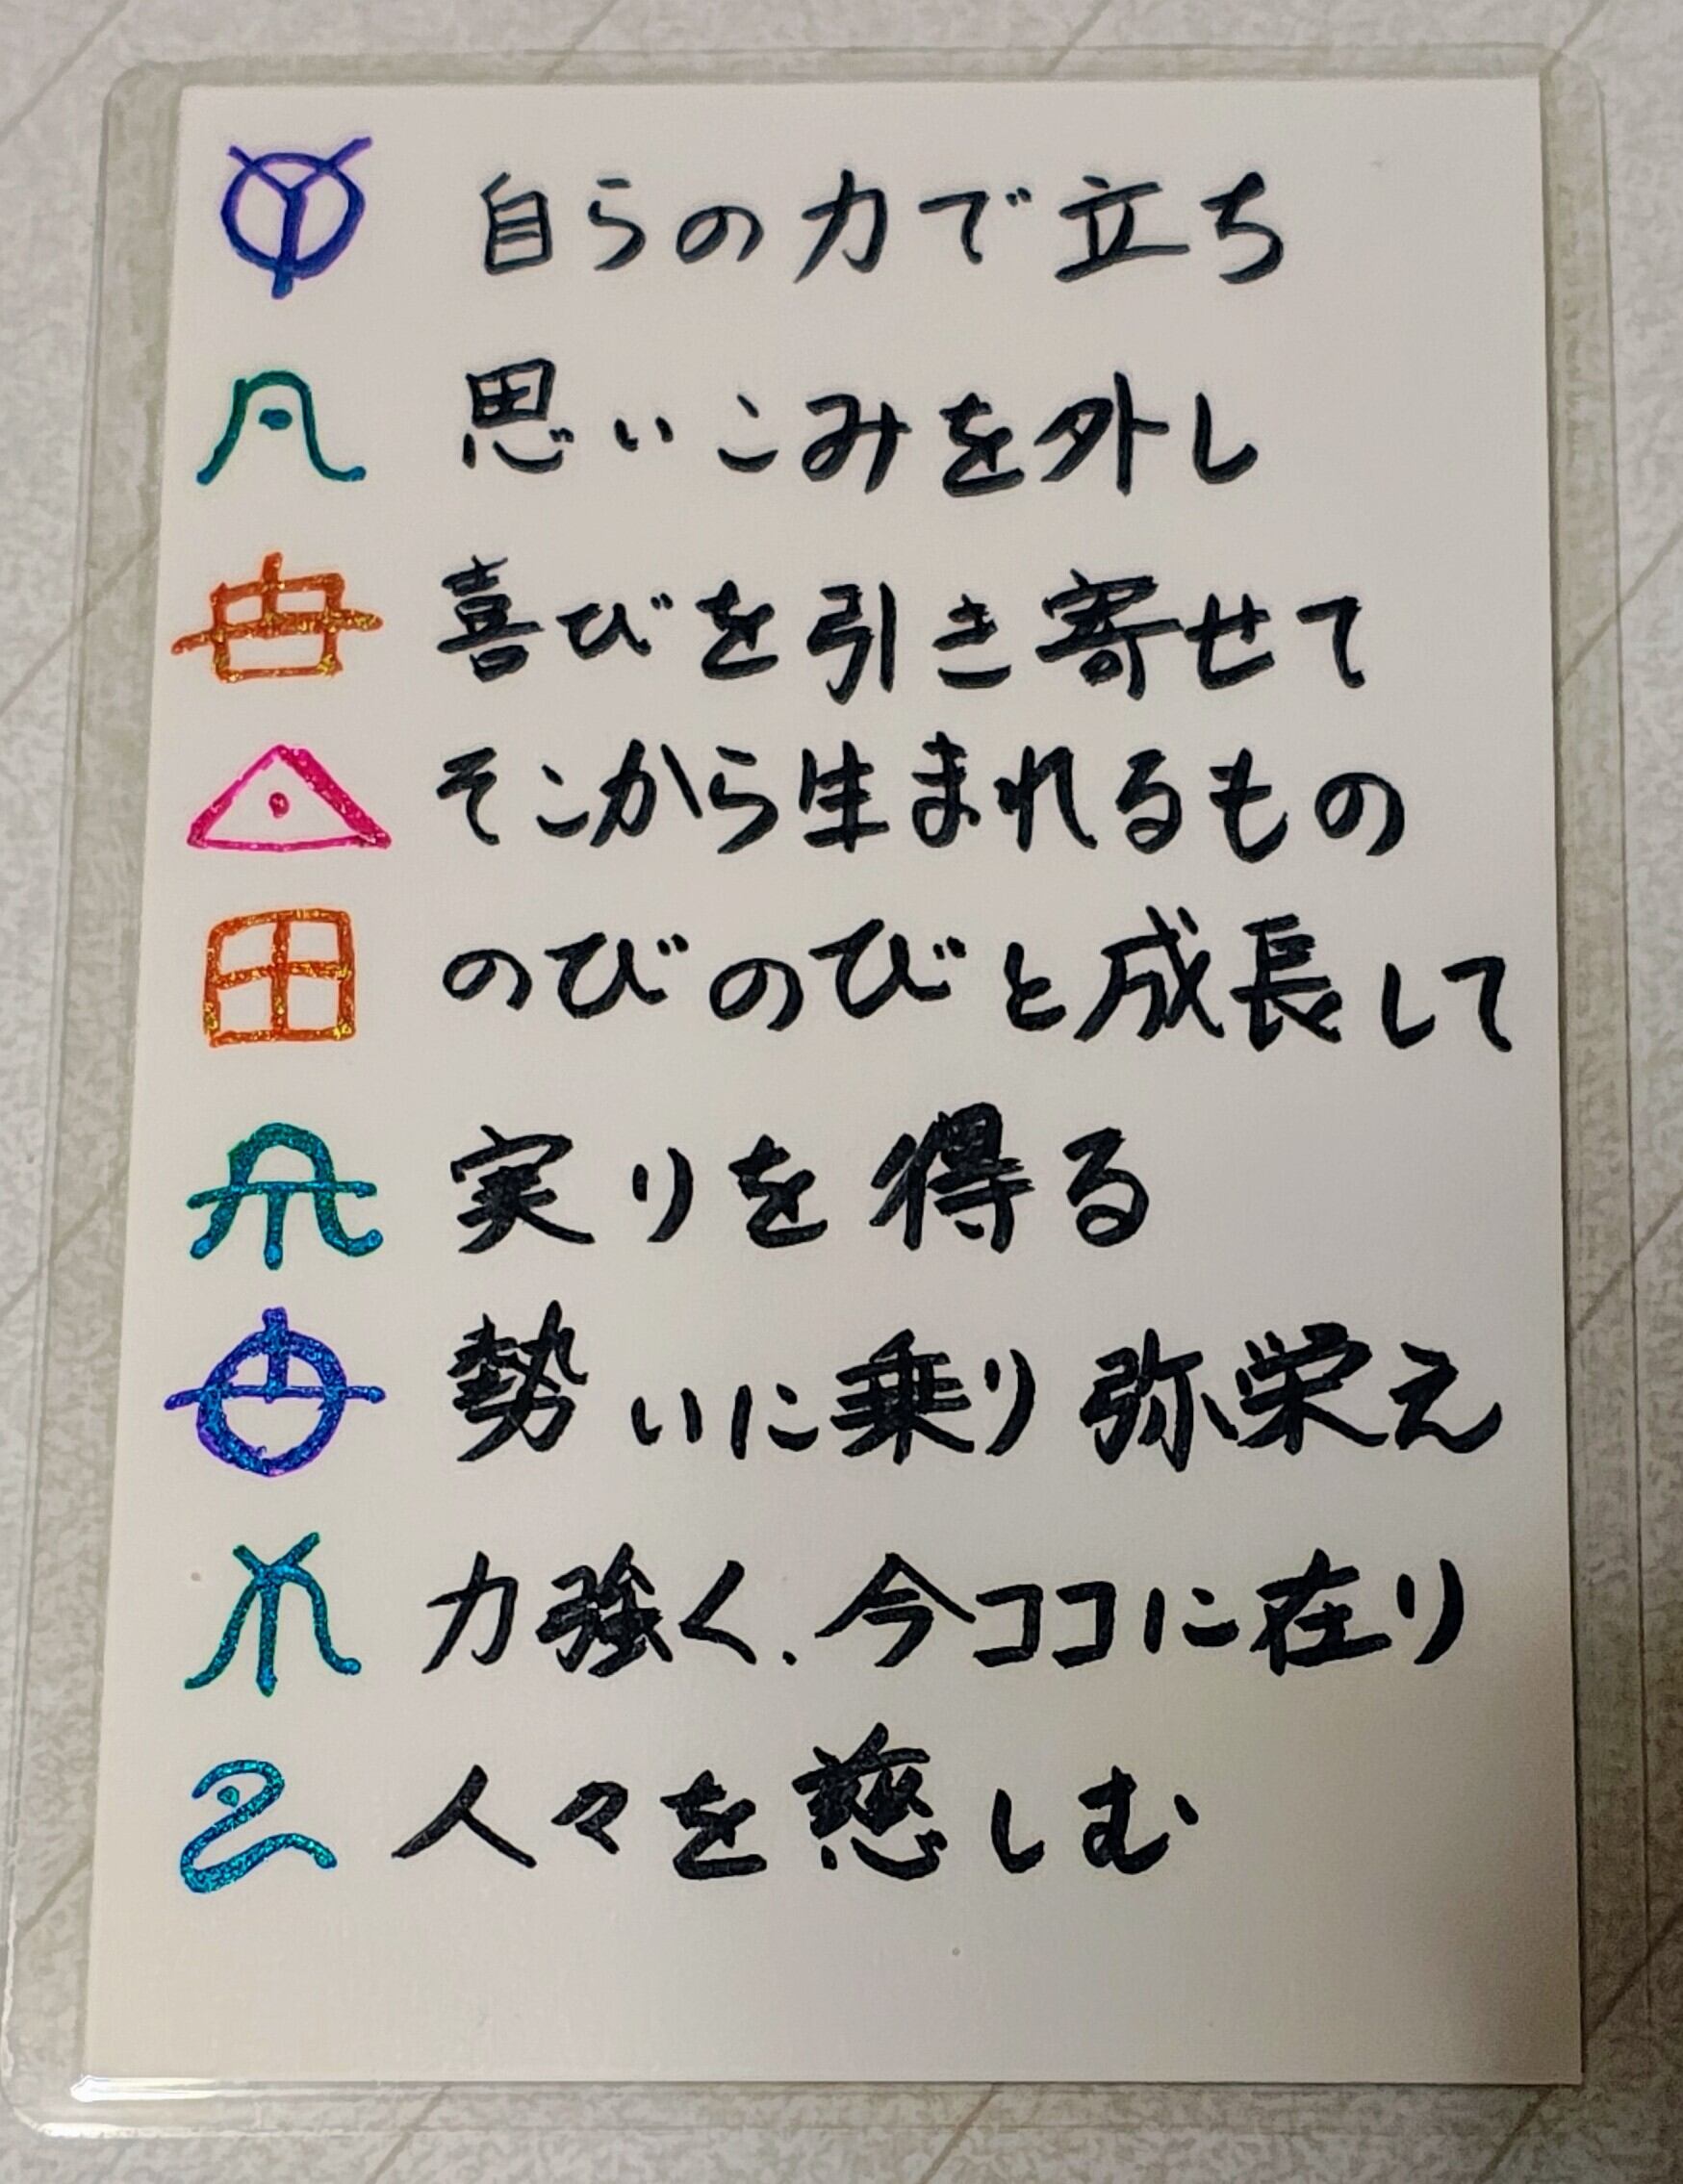 自らの力で立ち
思いこみを外し
喜びを引き寄せて
そこから生まれるもの
のびのびと成長して
実りを得る
勢いに乗り弥栄え
力強く、今ココに在り
人々を慈しむ